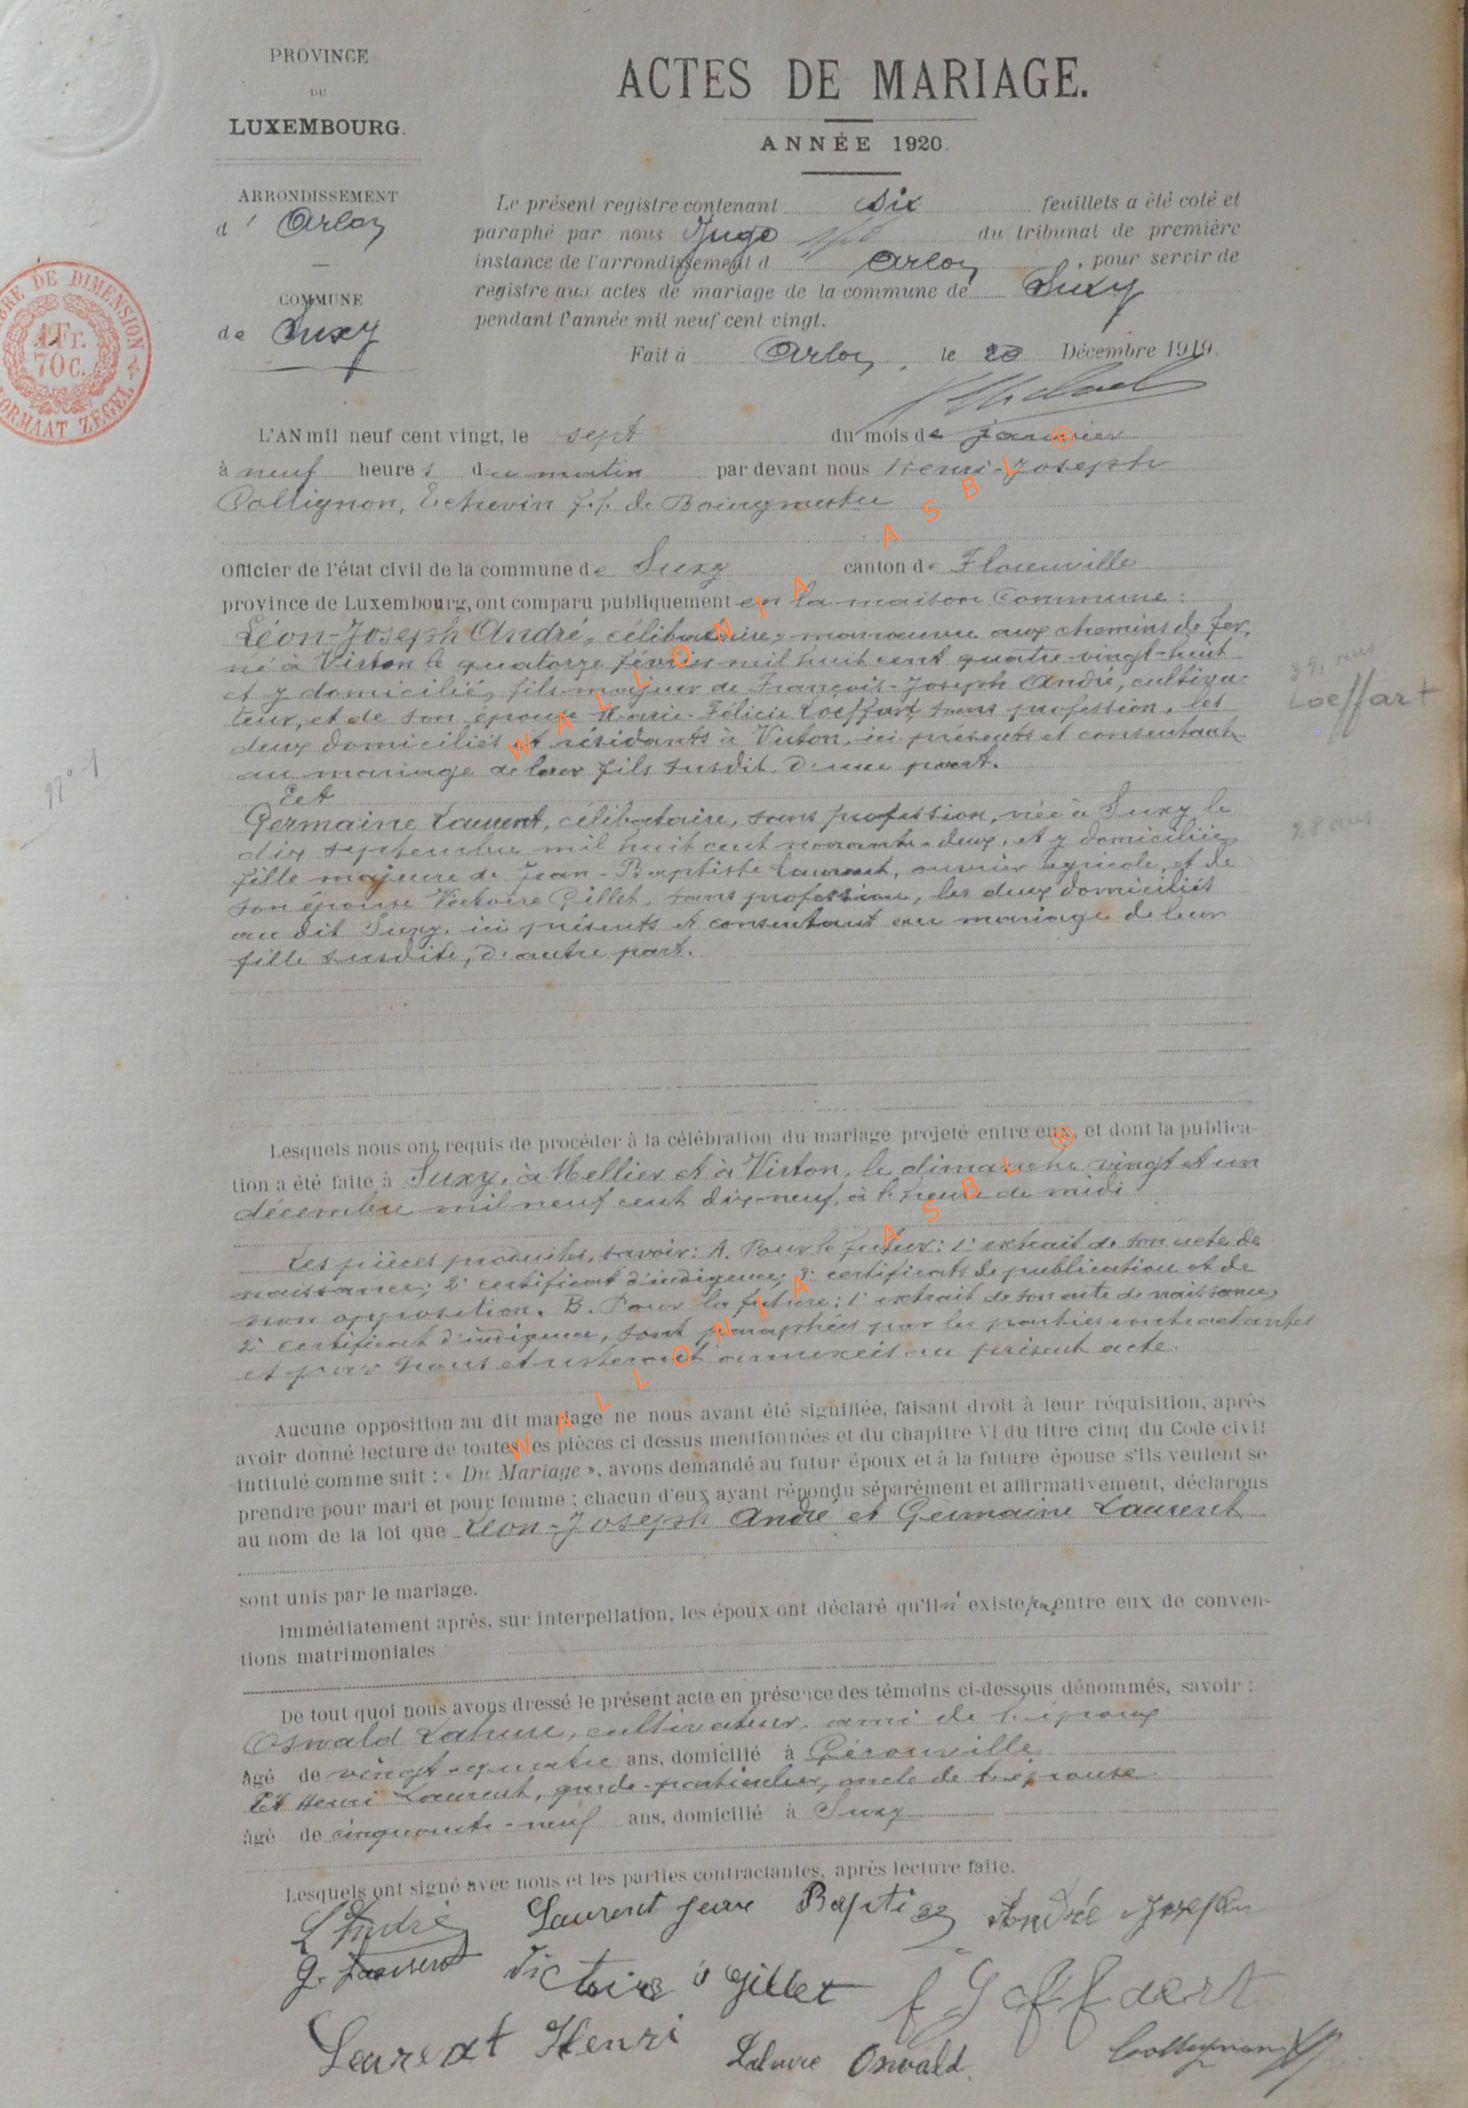 PROVINCE
DU
LUXEMBOURG.
ARRONDISSEMENT
d'Arlon
COMMUNE
de Suxy
TIMBRE DE DIMENSION
1 Fr.
70 C.
FORMAAT ZEGEL
ACTES DE MARIAGE.
ANNÉE 1920.
Le présent registre contenant six feuillets a été coté et
paraphé par nous Juge du tribunal de première
instance de l'arrondissement d Arlon, pour servir de
registre aux actes de mariage de la commune de Suxy
pendant l'année mil neuf cent vingt.
Fait à Arlon, le 20 Décembre 1919.
L'AN mil neuf cent vingt, le sept du mois de janvier
à neuf heures du matin par devant nous Henri-Joseph
Collignon, Echevin f.f. de Bourgmestre
Officier de l'état civil de la commune de Suxy canton de Florenville
province de Luxembourg, ont comparu publiquement en la maison Commune :
Léon-Joseph André, célibataire, manoeuvre aux chemins de fer,
né à Virton le quatorze février mil huit cent quatre-vingt-huit
et y domicilié, fils majeur de François-Joseph André, cultiva-
teur, et de son épouse Marie-Félicie Loeffart, sans profession, les
deux domiciliés et résidants à Virton, ici présents et consentant
au mariage de leur fils susdit, d'une part.
Et
Germaine Laurent, célibataire, sans profession, née à Suxy le
dix septembre mil huit cent nonante-deux, et y domiciliée
fille majeure de Jean-Baptiste Laurent, ouvrier agricole, et de
son épouse Victoire Gillet, sans profession, les deux domiciliés
au dit Suxy, ici présents et consentant au mariage de leur
fille susdite, d'autre part.
Loeffart
28 ans
n° 1
Lesquels nous ont requis de procéder à la célébration du mariage projeté entre eux, et dont la publica-
tion a été faite à Suxy, à Mellier et à Virton, le dimanche vingt et un
décembre mil neuf cent dix-neuf, à l'heure de midi
Les pièces produites, savoir : A. Pour le futur : 1° extrait de son acte de
naissance ; 2° certificat d'indigence ; 3° certificats de publication et de
non opposition. B. Pour la future : 1° extrait de son acte de naissance,
2° certificat d'indigence, sont paraphées par les parties contractantes
et par nous et resteront annexées au présent acte.
Aucune opposition au dit mariage ne nous ayant été signifiée, faisant droit à leur réquisition, après
avoir donné lecture de toutes les pièces ci dessus mentionnées et du chapitre VI du titre cinq du Code civil
intitulé comme suit : « Du Mariage », avons demandé au futur époux et à la future épouse s'ils veulent se
prendre pour mari et pour femme ; chacun d'eux ayant répondu séparément et affirmativement, déclarons
au nom de la loi que Léon-Joseph André et Germaine Laurent
sont unis par le mariage.
Immédiatement après, sur interpellation, les époux ont déclaré qu'il n'existe pas entre eux de conven-
tions matrimoniales
De tout quoi nous avons dressé le présent acte en présence des témoins ci-dessous dénommés, savoir :
Oswald Lahure, cultivateur, ami de l'époux
âgé de vingt-quatre ans, domicilié à Gérouville
Et Henri Laurent, garde-particulier, oncle de l'épouse
âgé de cinquante-neuf ans, domicilié à Suxy
Lesquels ont signé avec nous et les parties contractantes, après lecture faite.
L André Laurent Jean Baptise André Joseph
G. Laurent Victoire Gillet f Loeffaert
Laurent Henri Lahure Oswald Collignon
WALLONIA ASBL ®
WALLONIA ASBL ®